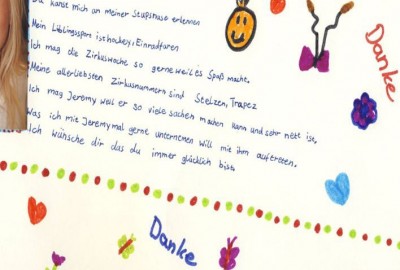 Du kanst mich an meiner Stupsnase erkennen
Mein Lieblingssport ist hockey, Einradfaren
Ich mag die Zirkuswoche so gerne weil es Spaß macht.
Meine allerliebsten Zirkusnummern sind Stelzen, Trapez
Ich mag Jeremy weil er so viele sachen machen kann und sehr nett ist.
Was ich mit Jeremy mal gerne unternemen will mit ihm auftreten.
Ich wünsche dir das du immer glücklich bist.
Danke
Danke